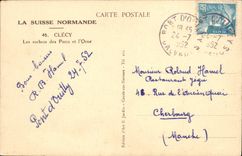 LA SUISSE NORMANDE
CARTE POSTALE
46. CLÉCY
Les rochers des Parcs et l'Orne
PONT D'OUILLY
24-7
1952
Bons baisers
R B Hamel
Pont d'Ouilly 24-7-52
Monsieur Roland Hamel
Restaurant
46, Rue de l'Ancien Quai
Cherbourg
(Manche)